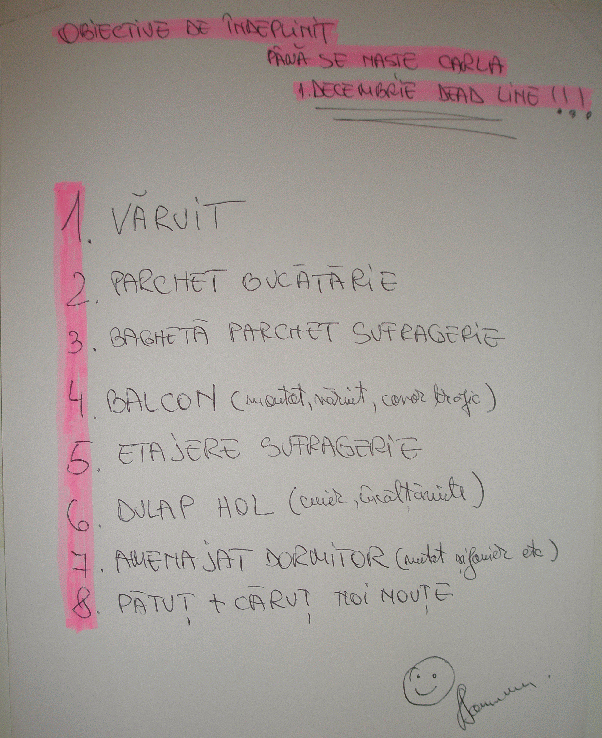 OBIECTIVE DE ÎNDEPLINIT
PÂNĂ SE NASTE CARLA
1. DECEMBRIE DEAD LINE !!!
1. VĂRUIT
2. PARCHET BUCĂTĂRIE
3. BAGHETĂ PARCHET SUFRAGERIE
4. BALCON (mutat, văruit, covor trafic)
5. ETAJERE SUFRAGERIE
6. DULAP HOL (cuier, încălțăminte)
7. AMENAJAT DORMITOR (mutat șifonier etc)
8. PĂTUȚ + CĂRUȚ NOI NOUȚE